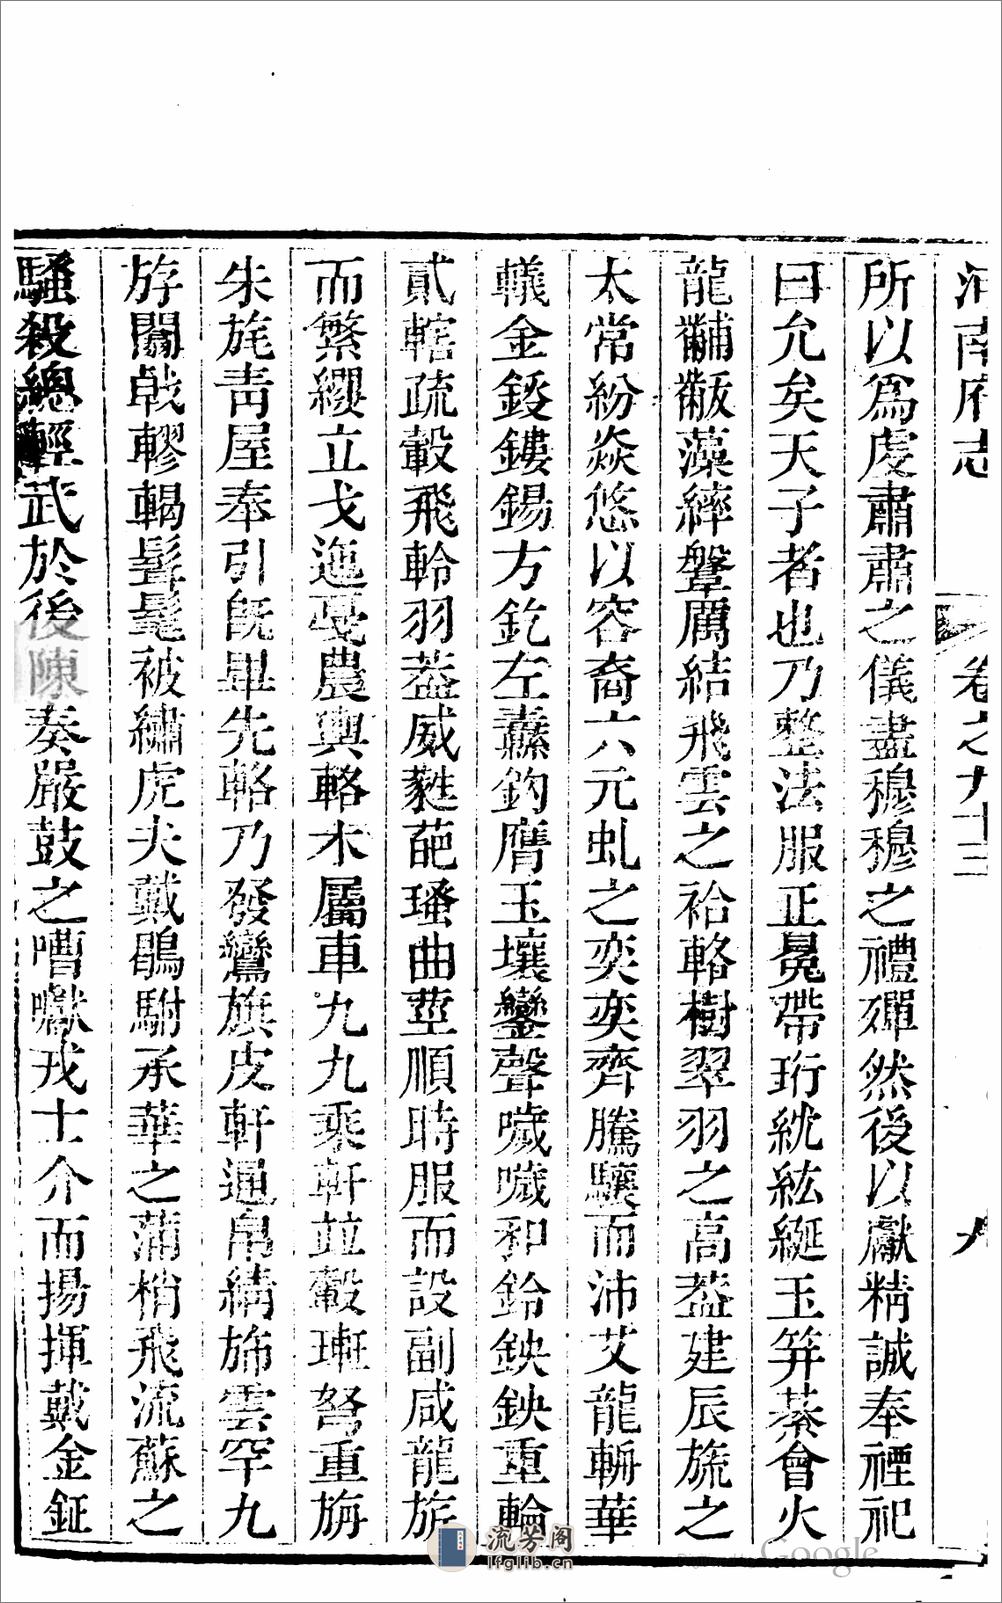 河南府志 卷之九十三 九
所以爲虔肅肅之儀盡穆穆之禮殫然後以獻精誠奉禋祀
曰允矣天子者也乃整法服正冕帶珩紞紘綖玉笄綦會火
龍黼黻藻繂鞶厲結飛雲之袷輅樹翠羽之高葢建辰旒之
太常紛焱悠以容裔六元虬之奕奕齊騰驤而沛艾龍輈華
轙金鋄鏤錫方釳左纛鈎膺玉瓖鑾聲噦噦和鈴鉠鉠重輪
貳轄疏轂飛軨羽葢威蕤葩瑵曲莖順時服而設副咸龍旂
而繁纓立戈迤戛農輿輅木屬車九九乘軒竝轂㻠弩重旃
朱旄青屋奉引旣畢先輅乃發鸞旗皮軒通帛綪斾雲罕九
斿闟戟轇輵髶髦被繡虎夫戴鶡駙承華之蒲梢飛流蘇之
騷殺總輕武於後陳奏嚴鼓之嘈囐戎士介而揚揮戴金鉦
流芳阁
lfglib.cn
Google